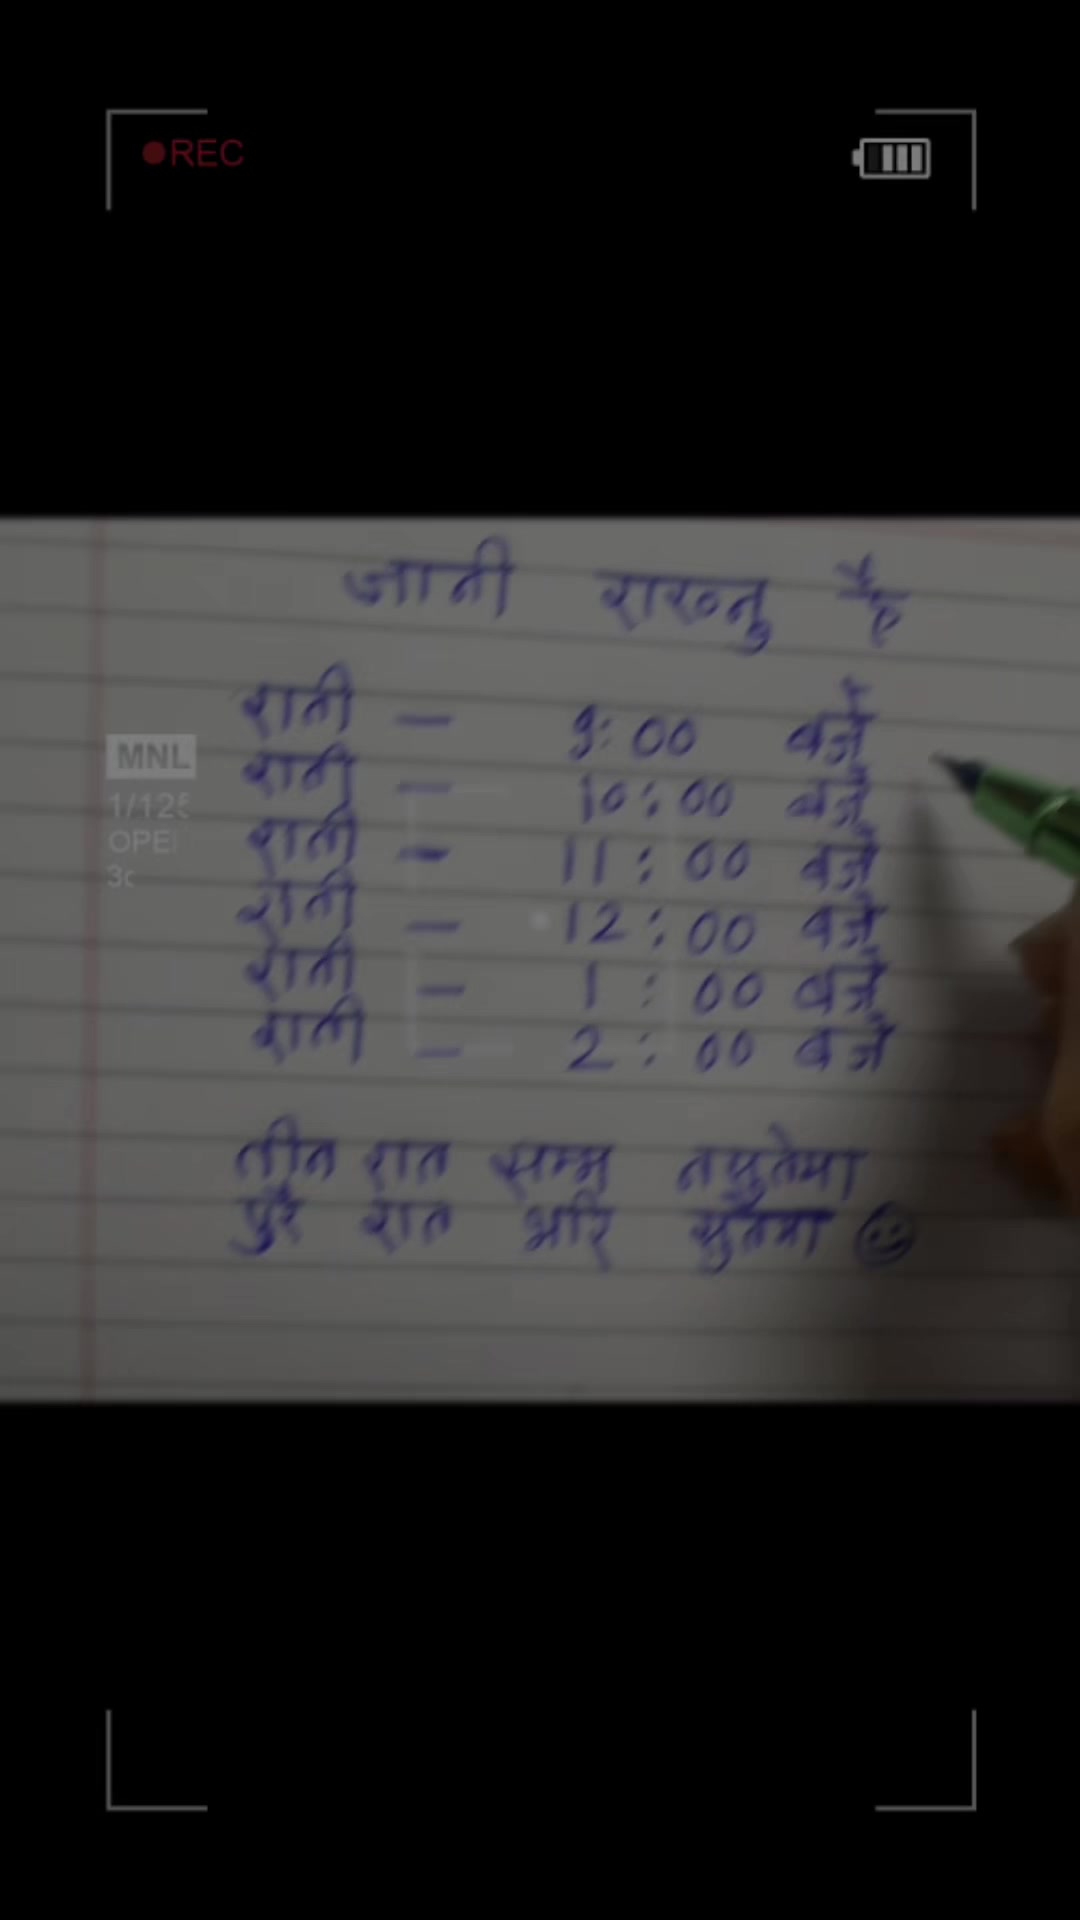 REC
जानी राख्नु है
राती - 9:00 बजे
राती - 10:00 बजे
राती - 11:00 बजे
राती - 12:00 बजे
राती - 1:00 बजे
राती - 2:00 बजे
तीन रात सम्म नसुतेमा
पुरै रात भरि सुतेमा
MNL
1/125
OPE